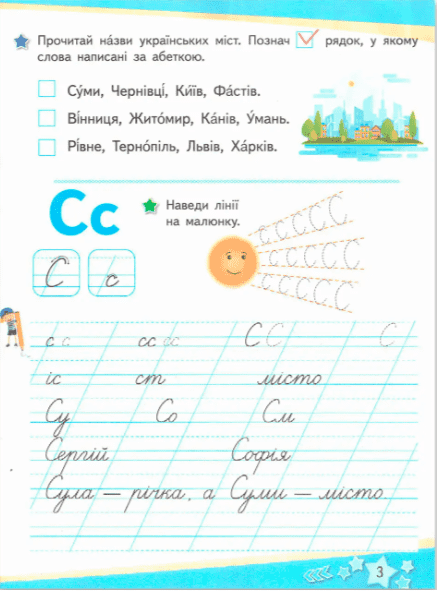 Прочитай на́зви українських міст. Познач рядок, у якому
слова написані за абеткою.
Су́ми, Чернівці́, Ки́їв, Фа́стів.
Ві́нниця, Жито́мир, Ка́нів, У́мань.
Рі́вне, Терно́піль, Львів, Ха́рків.
Сс
Наведи лінії
на малюнку.
С С С С С
С С С С С
С С С С С
С с
с с сс сс С С С
іс ст місто
Су Со См
Сергій Софія
Сула — річка, а Суми — місто.
3